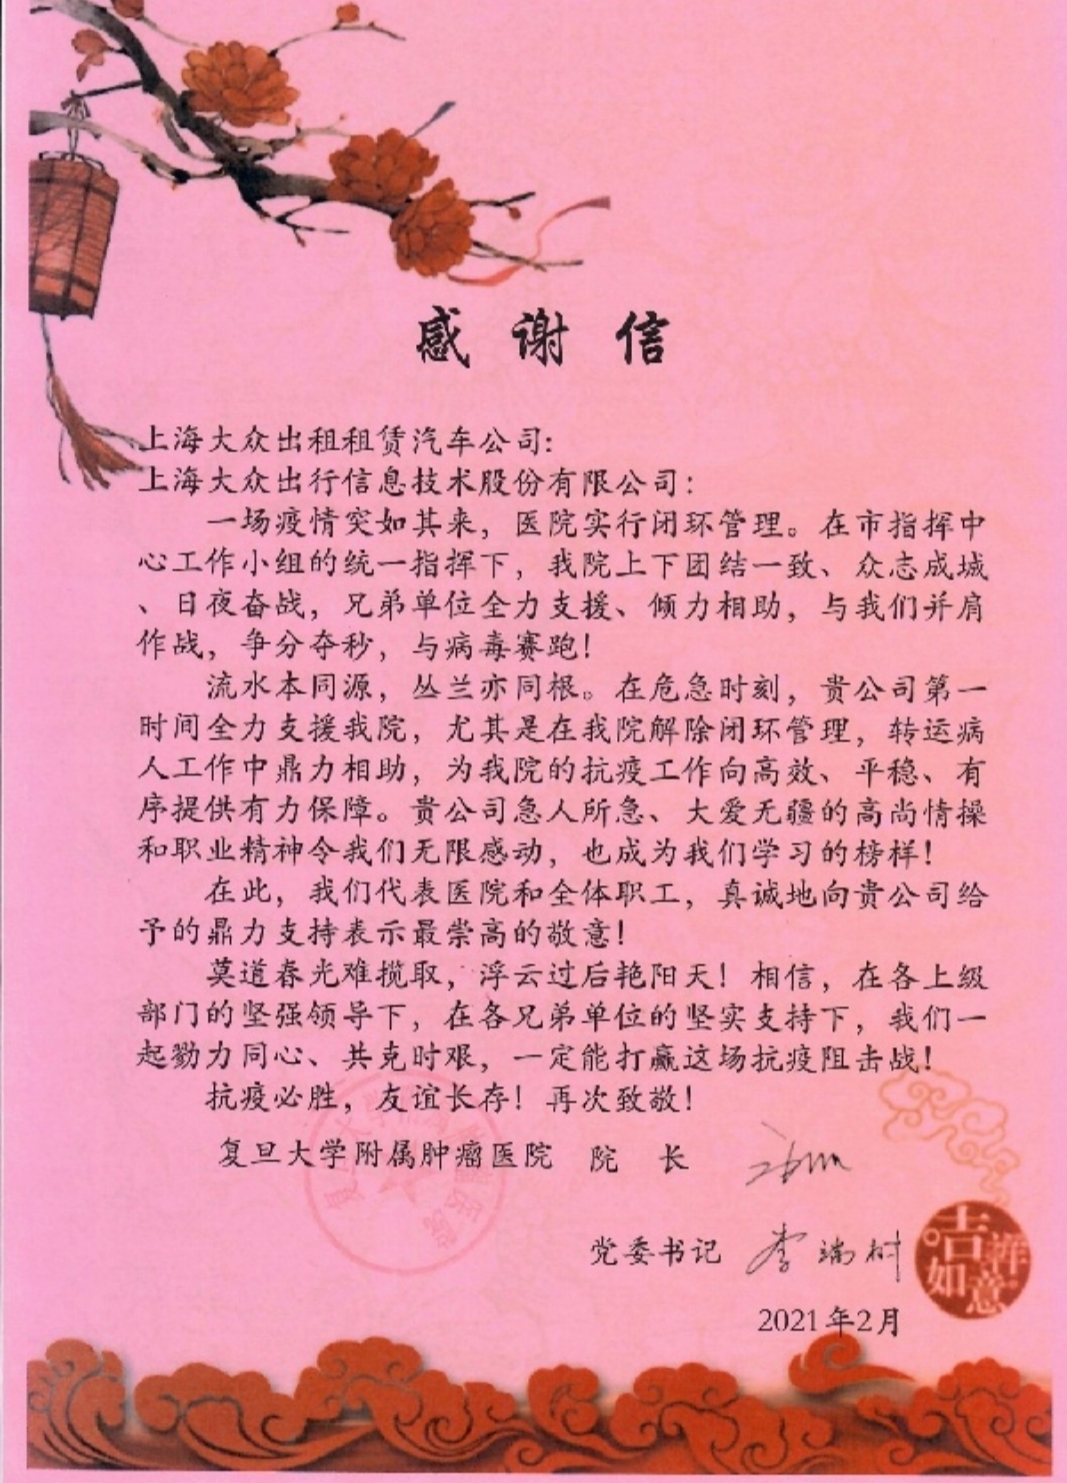 感谢信
上海大众出租租赁汽车公司:
上海大众出行信息技术股份有限公司:
一场疫情突如其来，医院实行闭环管理。在市指挥中
心工作小组的统一指挥下，我院上下团结一致、众志成城
、日夜奋战，兄弟单位全力支援、倾力相助，与我们并肩
作战，争分夺秒，与病毒赛跑！
流水本同源，丛兰亦同根。在危急时刻，贵公司第一
时间全力支援我院，尤其是在我院解除闭环管理，转运病
人工作中鼎力相助，为我院的抗疫工作向高效、平稳、有
序提供有力保障。贵公司急人所急、大爱无疆的高尚情操
和职业精神令我们无限感动，也成为我们学习的榜样！
在此，我们代表医院和全体职工，真诚地向贵公司给
予的鼎力支持表示最崇高的敬意！
莫道春光难揽取，浮云过后艳阳天！相信，在各上级
部门的坚强领导下，在各兄弟单位的坚实支持下，我们一
起勠力同心、共克时艰，一定能打赢这场抗疫阻击战！
抗疫必胜，友谊长存！再次致敬！
复旦大学附属肿瘤医院 院 长
党委书记 李端树
2021年2月
吉祥如意